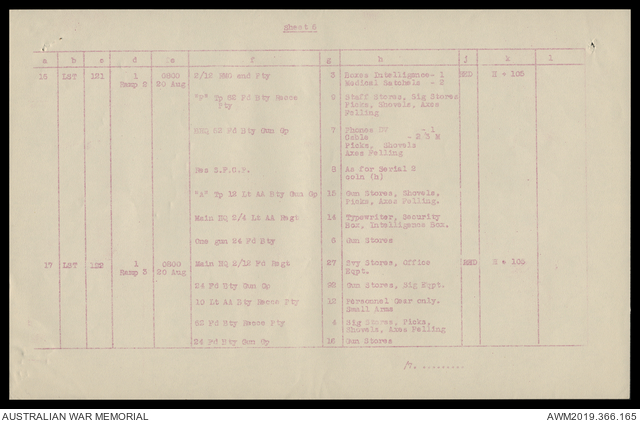 Sheet 6
a b c d e f g h j k l
15 LST 121 1 0800 2/12 and Pty 2 Boxes Intelligence- 1 RHD H + 105
Ramp 2 20 Aug Medical Satchels - 2
"F" Tp 62 Fd Bty Recce 2 Staff Stores, Sig Stores
Pty Picks, Shovels, Axes
Felling
62 Fd Bty Gun Gp 7 Phones - 1
Cable - 2 3 M
Picks, Shovels
Axes Felling
Res 2 As for Serial 2
coln (h)
"A" Tp 12 Lt AA Bty Gun Gp 15 Gun Stores, Shovels,
Picks, Axes Felling.
Main HQ 2/4 Lt AA Regt 14 Typewriter, Security
Box, Intelligence Box.
One gun 24 Fd Bty 6 Gun Stores
17 LST 122 1 0800 Main HQ 2/12 Fd Regt 27 Svy Stores, Office RHD H + 105
Ramp 3 20 Aug Eqpt.
24 Fd Bty Gun Gp 22 Gun Stores, Sig Eqpt.
10 Lt AA Bty Recce Pty 12 Personnel Gear only.
Small Arms
62 Fd Bty Recce Pty 4 Sig Stores, Picks,
Shovels, Axes Felling
24 Fd Bty Gun Gp 16 Gun Stores
AUSTRALIAN WAR MEMORIAL AWM2019.366.165